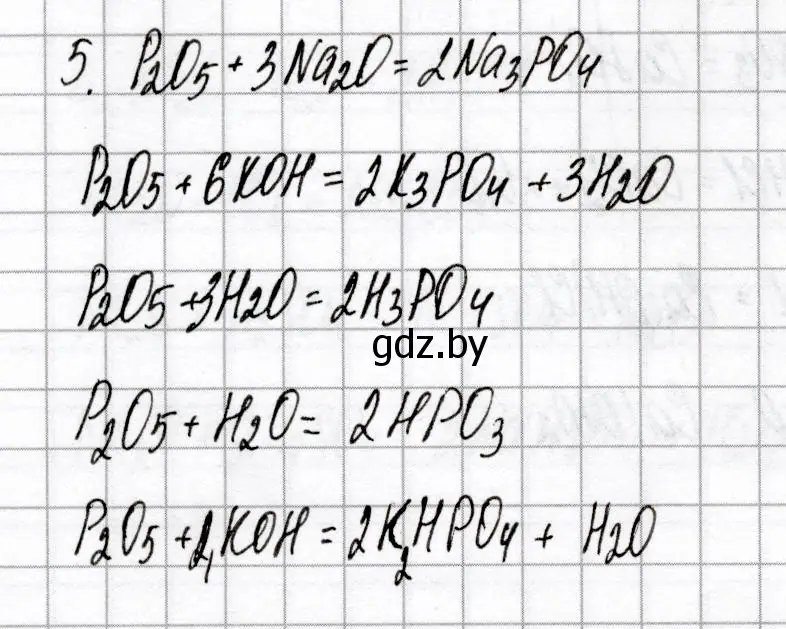 5. P₂O₅ + 3Na₂O = 2Na₃PO₄
P₂O₅ + 6KOH = 2K₃PO₄ + 3H₂O
P₂O₅ + 3H₂O = 2H₃PO₄
gdz.by
P₂O₅ + H₂O = 2HPO₃
P₂O₅ + KOH = 2K₂HPO₄ + H₂O